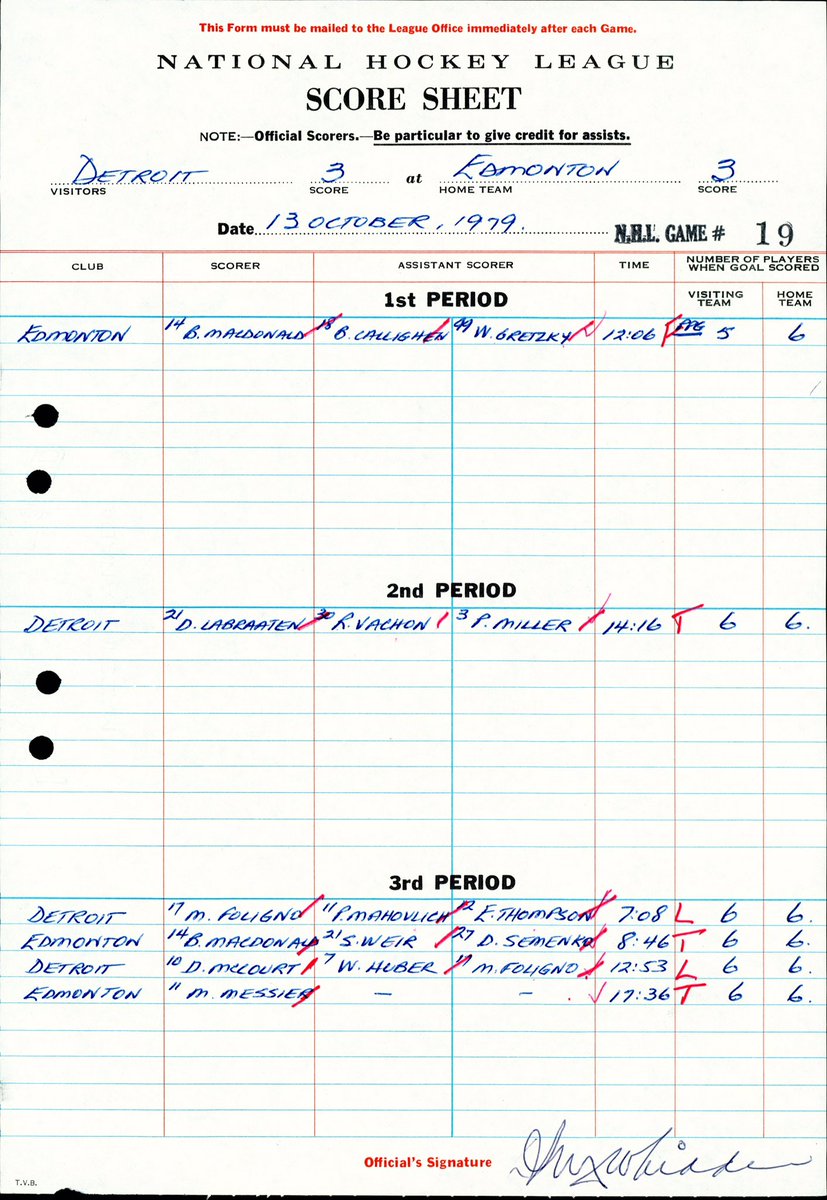 This Form must be mailed to the League Office immediately after each Game.
NATIONAL HOCKEY LEAGUE
SCORE SHEET
NOTE:—Official Scorers.—Be particular to give credit for assists.
DETROIT 3 at EDMONTON 3
VISITORS SCORE HOME TEAM SCORE
Date 13 OCTOBER, 1979. N.H.L. GAME # 19
CLUB SCORER ASSISTANT SCORER TIME NUMBER OF PLAYERS WHEN GOAL SCORED
1st PERIOD VISITING TEAM HOME TEAM
EDMONTON 14 B. MACDONALD 18 B. CALLIGHEN 99 W. GRETZKY 12:06 PPG 5 6
2nd PERIOD
DETROIT 21 D. LABRAATEN 30 R. VACHON 3 P. MILLER 14:16 T 6 6.
3rd PERIOD
DETROIT 17 M. FOLIGNO 11 P. MAHOVLICH 12 E. THOMPSON 7:08 L 6 6.
EDMONTON 14 B. MACDONALD 21 S. WEIR 27 D. SEMENKO 8:46 T 6 6.
DETROIT 10 D. MCCOURT 7 W. HUBER 17 M. FOLIGNO 12:53 L 6 6.
EDMONTON 11 M. MESSIER — — 17:36 T 6 6.
Official's Signature
T.V.B.